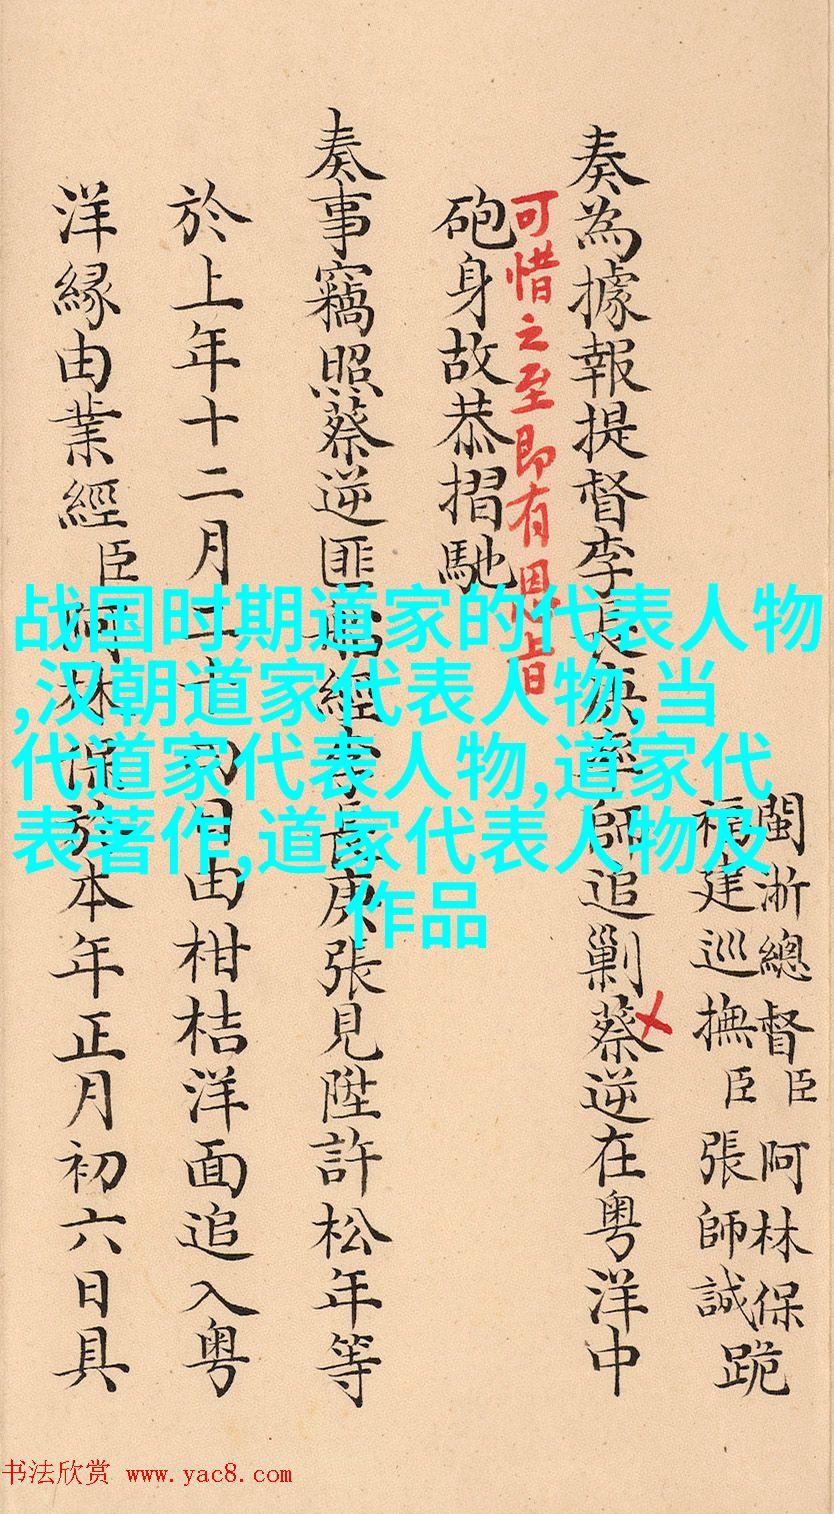 閩浙總督臣阿林保
福建巡撫臣張師誠跪
奏為據報提督李長庚率師追剿蔡逆在粤洋中
可惜之至即有恩旨
砲身故恭摺馳
奏事竊照蔡逆匪船經李長庚張見陞許松年等
於上年十二月二十四日由柑桔洋面追入粤
洋縁由業經臣阿林保於本年正月初六日具
战国时期道家的代表人物
,汉朝道家代表人物,当
代道家代表人物,道家代
表著作,道家代表人物及
作品
书法欣赏 www.yac8.com